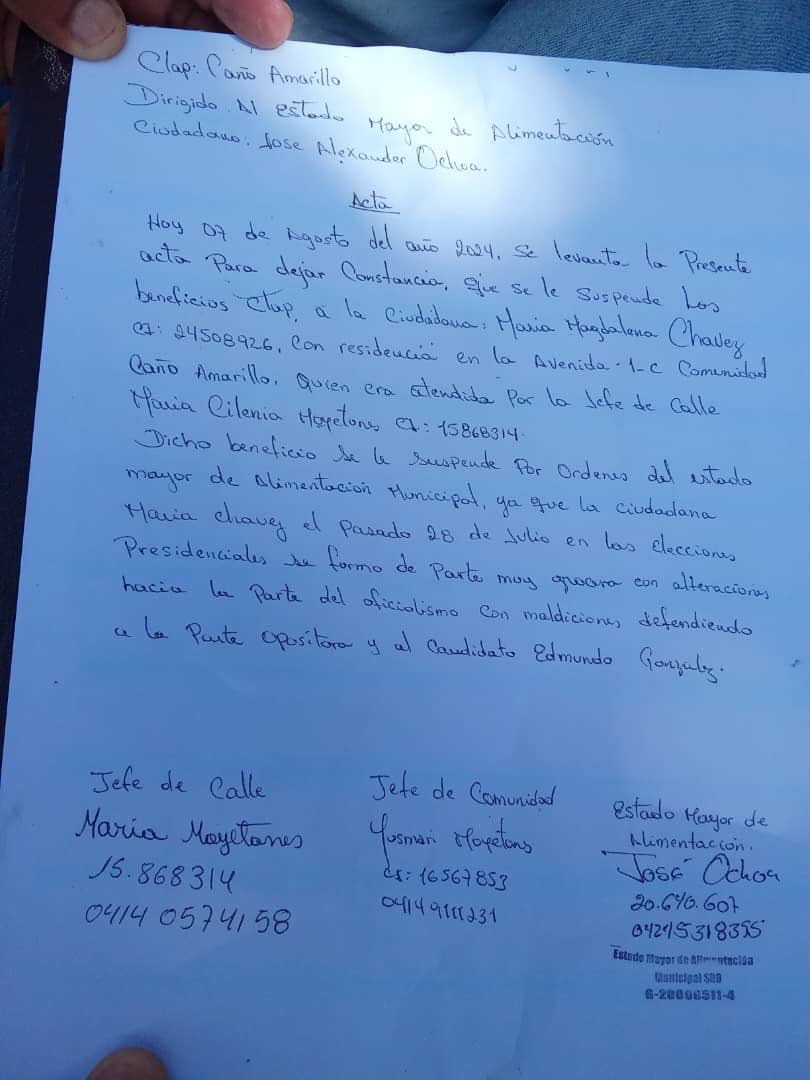 Clap: Caño Amarillo
Dirigido Al Estado Mayor de Alimentación
Ciudadano: Jose Alexander Ochoa.
Acta
Hoy 07 de Agosto del año 2024, se levanta la Presente
acta Para dejar Constancia, que se le Suspende Los
beneficios Clap, a la Ciudadana: Maria Magdalena Chavez
CI: 24508926, Con residencia en la Avenida 1-C Comunidad
Caño Amarillo, Quien era atendida Por la Jefe de Calle
Maria Cilenia Moyetones CI: 15868314.
Dicho beneficio se le suspende Por Ordenes del estado
mayor de Alimentación Municipal, ya que la ciudadana
Maria Chavez el Pasado 28 de Julio en las elecciones
Presidenciales se formo de Parte muy con alteraciones
hacia la Parte del oficialismo con maldiciones defendiendo
a la Parte Opositora y al Candidato Edmundo Gonzalez.
Jefe de Calle
Maria Moyetones
15.868314
0414 0574158
Jefe de Comunidad
Yusmari Moyetons
CI: 16567853
04149111231
Estado Mayor de
Alimentacción.
José Ochoa
20.640.607
04245318355
Estado Mayor de Alimentación
Municipal
G-20006511-4